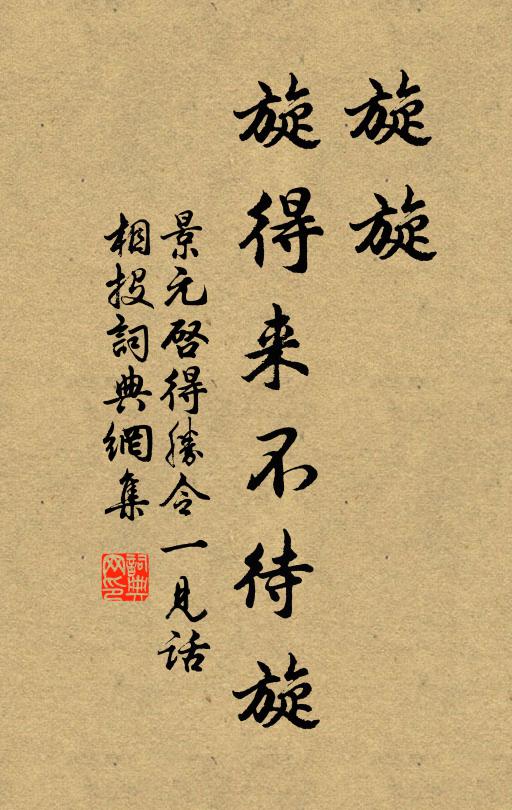 旋旋
旋得来不待旋
景元启得勝令一見話
相投詞典網集
詞典网印